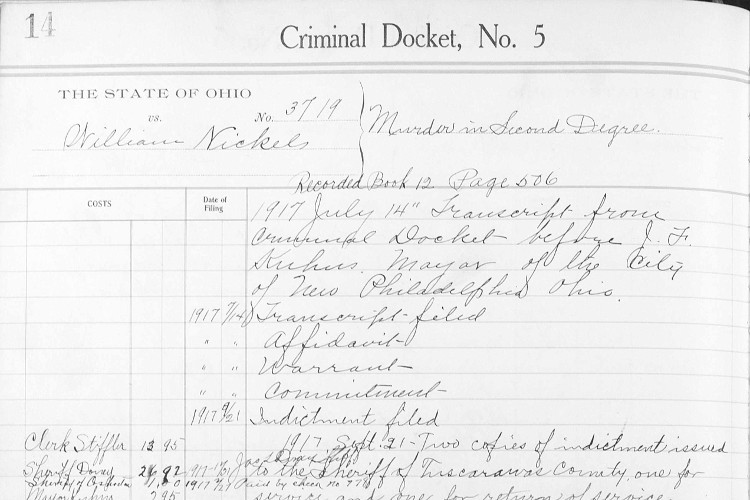 14
Criminal Docket, No. 5
THE STATE OF OHIO
vs.
No. 3719
William Nickels
Murder in Second Degree.
Recorded Book 12 Page 506
COSTS
Date of Filing
1917 July 14" Transcript from
Criminal Docket before J. F.
Kuhns, Mayor of the City
of New Philadelphia Ohio.
1917 7/14 Transcript filed
" " Affidavit
" " Warrant
" " Commitment
1917 9/21 Indictment filed
Clerk Stiffler 13 95 1917 Sept. 21 - Two copies of indictment issued
Sheriff 26 92 to the Sheriff of Tuscarawas County, one for
Sheriff of 1917 Paid by check no 77
Mayor 2 95 service and one for return of service